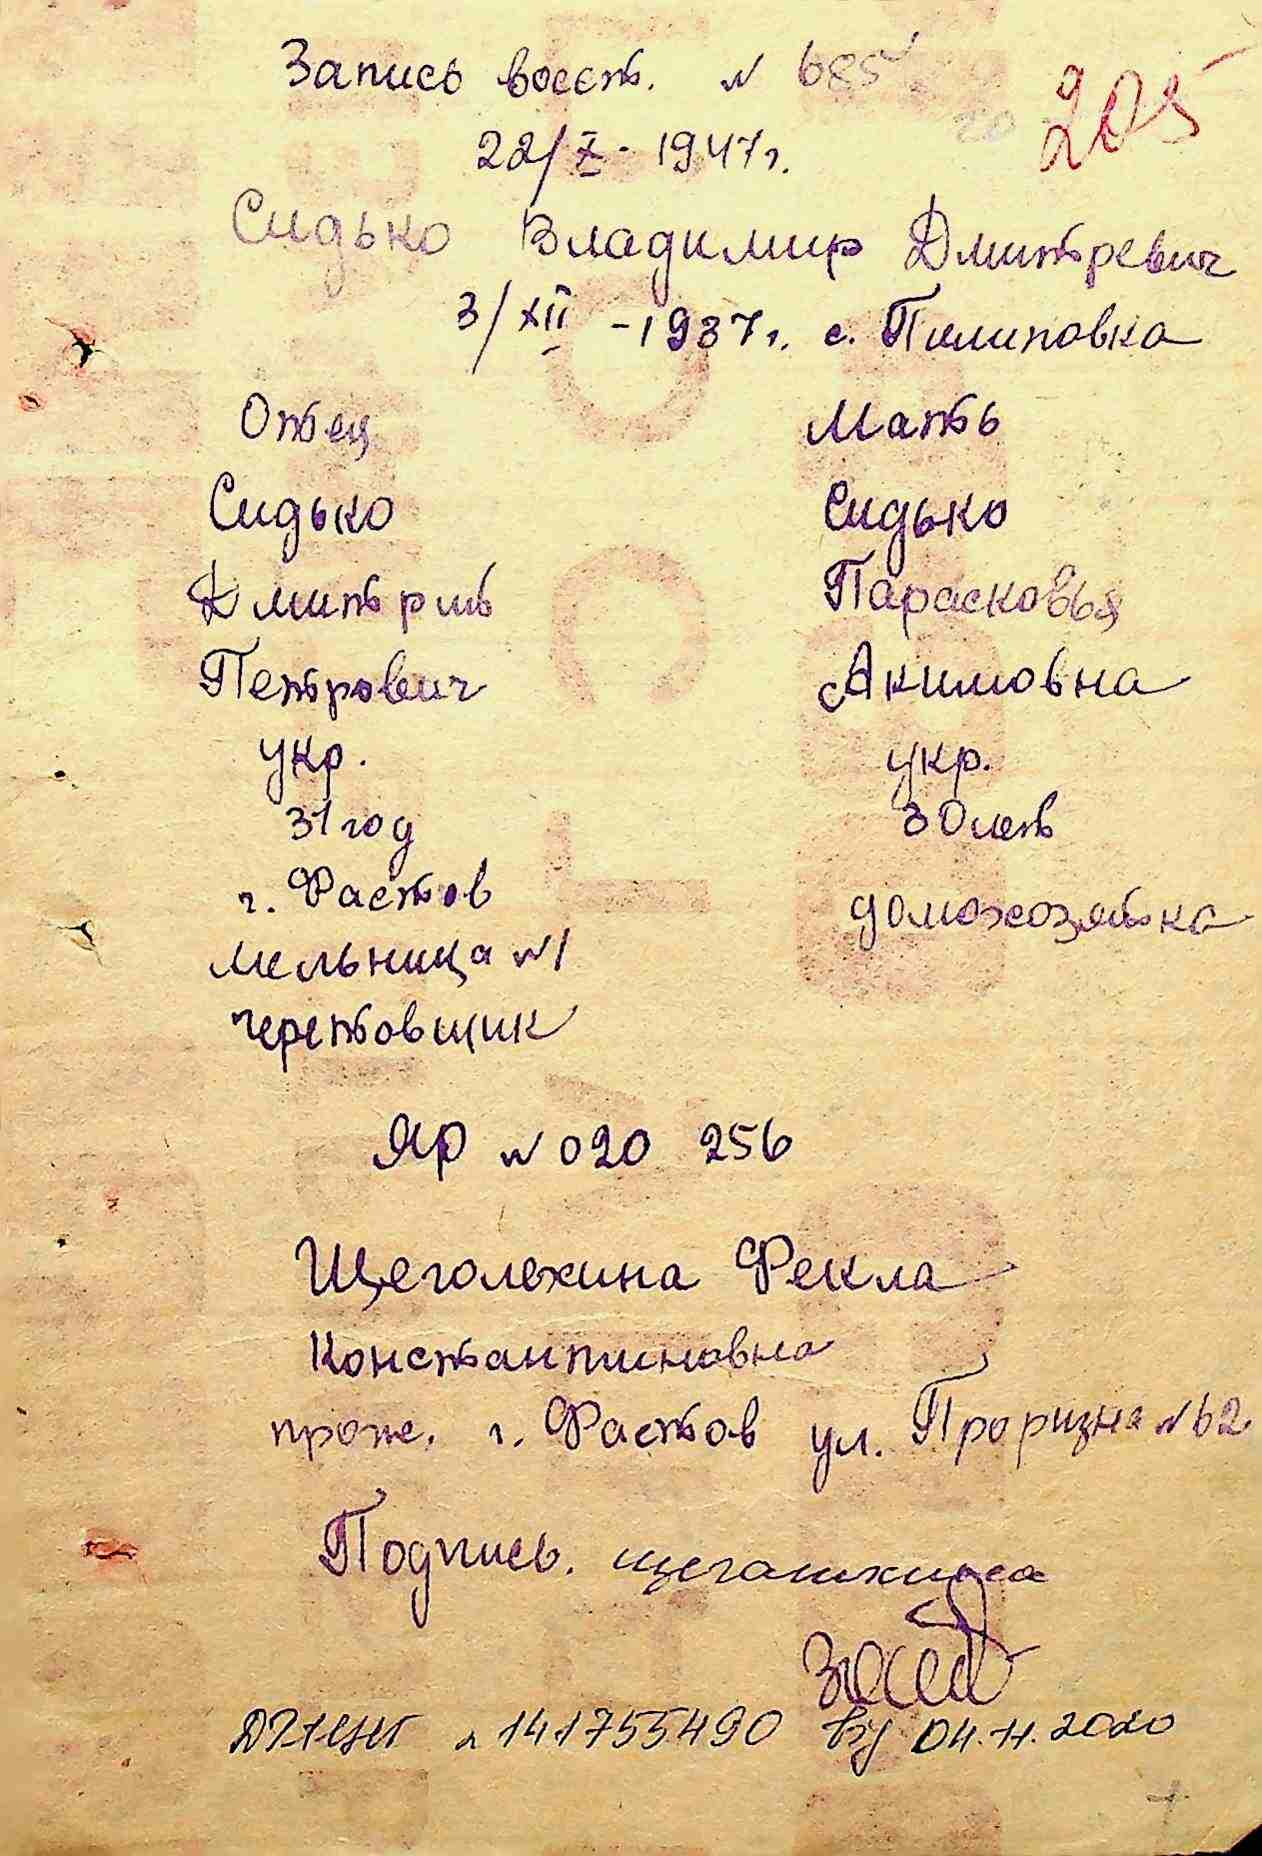 Запись восст. N 685
205
22/X - 1947 г.
Сидько Владимир Дмитревич
3/XII - 1937 г. с. Пилиповка
Отец Мать
Сидько Сидько
Дмитрий Парасковья
Петрович Акимовна
укр. укр.
31 год 30 лет
г. Фастов домохозяйка
мельница N 1
черетовщик
ЯР N 020 256
Щеголехина Фекла
Константиновна
прож. г. Фастов ул. Проризна N 62
Подпись.
N 141755490 від 04.11.2020